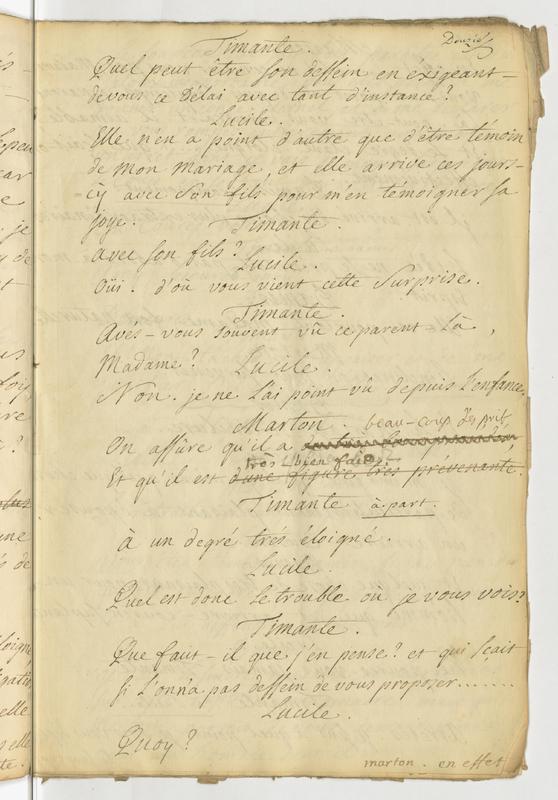 Timante.
Quel peut être son dessein en exigeant
de vous ce Délai avec tant d'instance?
Lucile.
Elle n'en a point d'autre que d'être témoin
de mon mariage, et elle arrive ces jours-
cÿ avec son fils pour m'en témoigner sa
joye.
Timante.
avec son fils?
Lucile.
Oüi. d'où vous vient cette Surprise.
Timante.
Avés-vous souvent vû ce parent-là,
Madame?
Lucile.
Non. je ne l'ai point vû depuis l'enfance.
Marton.
beau-coup d'esprit
On assûre qu'il a
très bien fait.
Et qu'il est d'une figure très prévenante.
Timante à part.
à un degré trés éloigné.
Lucile.
Quel est donc le trouble où je vous vois?
Timante.
Que faut-il que j'en pense? et qui sçait
si l'on n'a pas dessein de vous proposer.......
Lucile.
Quoy?
marton. en effet